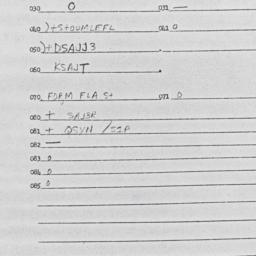 030 0 031 —
040 )+S+OUMLEFL 041 0
050 )+DSAJJ3
060 KSAJT
070 FORM FLA S+ 071 0
080 + SAJ3R
081 + QSYN /SIP
082 —
083 0
084 0
085 0